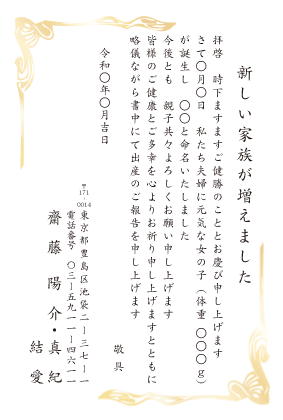 新しい家族が増えました
拝啓　時下ますますご健勝のこととお慶び申し上げます
さて〇月〇日　私たち夫婦に元気な女の子（体重　〇〇〇〇ｇ）
が誕生し　〇〇と命名いたしました
今後とも　親子共々よろしくお願い申し上げます
皆様のご健康とご多幸を心よりお祈り申し上げますとともに
略儀ながら書中にて出産のご報告を申し上げます
敬具
令和〇年〇月吉日
〒171-0014
東京都豊島区池袋二ー三七ー一
電話番号　〇三ー五九一一ー四六一一
齋藤　陽介・真紀
結愛